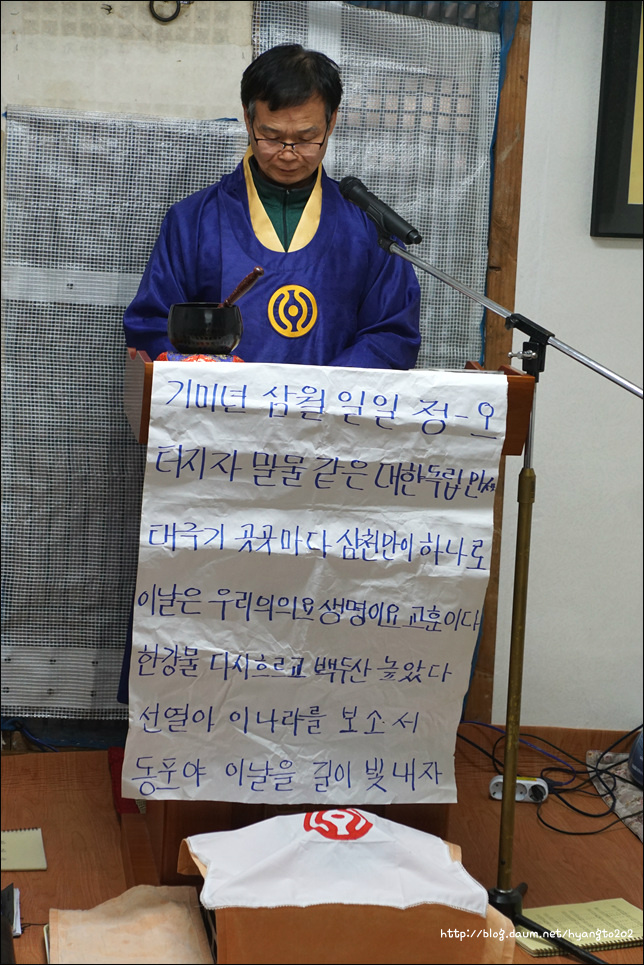 기미년 삼월 일일 정-오
터지자 밀물 같은 대한독립 만세
태극기 곳곳마다 삼천만이 하나로
이날은 우리의 의요 생명이요 교훈이다
한강물 다시 흐르고 백두산 높았다
선열아 이나라를 보소서
동포야 이날을 길이 빛내자
http://blog.daum.net/hyangto202